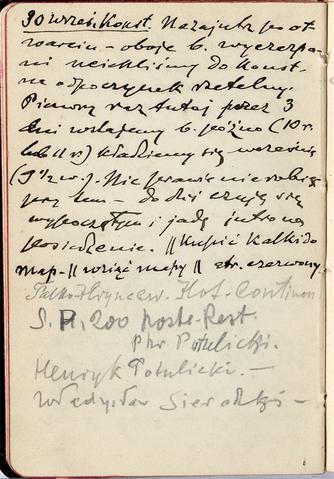 30 wrześ. Konst. Nazajutrz po ot
warciu – oboje b. wyczerpa
ni uciekliśmy do Konst-
na odpoczynek rzetelny.
Pierwszy raz tutaj przez 3
dni wstajemy b. późno (10 r.
lub 11 r.) kładziemy się wcześnie
(9½ w.). Nic prawie nie robię
przy tem – do dziś czuję się
wypoczętym i jadę jutro na
posiedzenie. || Kupić kalki do
map – || wziąć mapy || atr. czerwony
Hryncew. Hot. Continen
S. P. 200 Poste-Rest.
Potulicki.
Henryk Potulicki. –
Władysław Sieradzki –